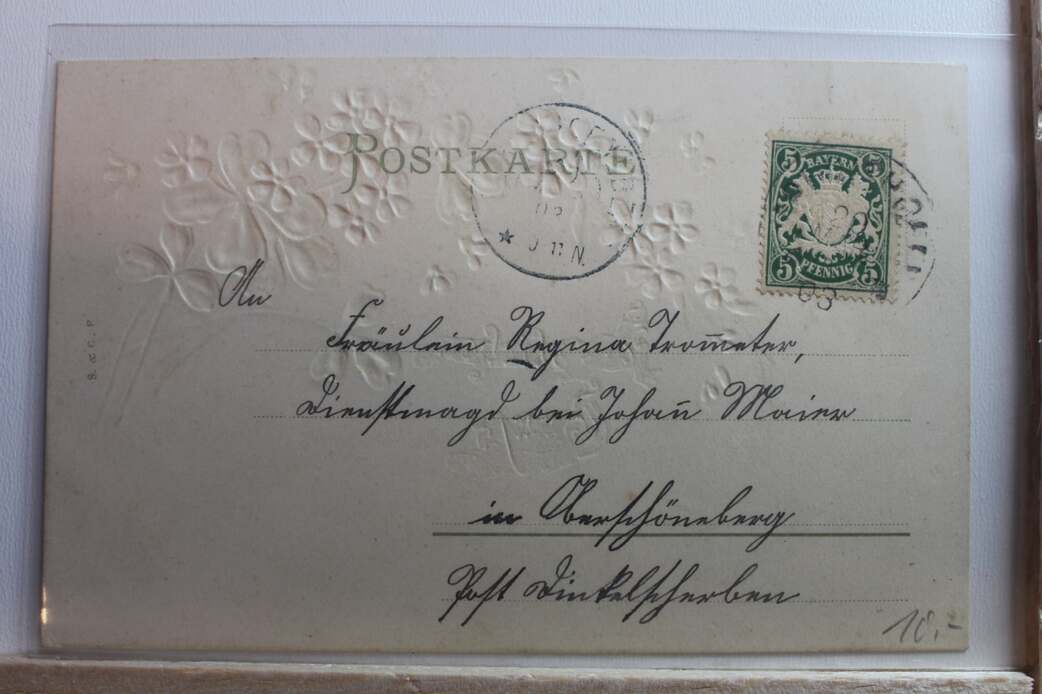 POSTKARTE
5 BAYERN 5
5 PFENNIG 5
03
11 N.
An
Fräulein Regina Trom̅eter,
Dienstmagd bei Johan̅ Maier
in Oberschöneberg
Post Dinkelscherben
B. & C. P.
10.-